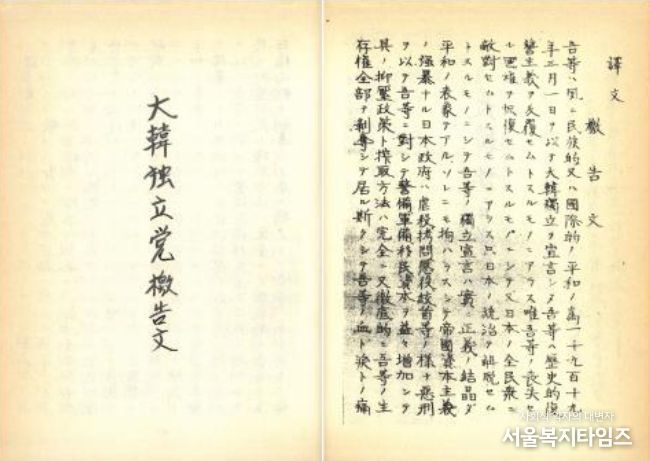 大韓独立党檄告文
譯文
檄告文
吾等ハ夙ニ民族的又ハ國際的ノ平和ノ為一千九百十九
年三月一日ヲ以テ大韓獨立ヲ宣言シタ吾等ハ歷史的復
讐主義ヲ反復セムトスルモノニアラス唯吾等ノ喪失シ
國雄ヲ恢復セムトスルモノニシテ又日本ノ全民衆ニ
敵對セムトスルモノニアラス只日本ノ統治ヲ解脫セム
トスルモノニシテ吾等ノ獨立宣言ハ實ニ正義ノ結晶ダ
平和ノ表象テアルソレニモ拘ハラスシテ帝國資本主義
ノ强暴ナル日本政府ハ虐殺拷問懲役 等ノ様ナ悪刑
ヲ以テ吾等ニ對シテ警備軍備移民資本ヲ益々增加シテ
其ノ抑壓政策ト搾取方法ハ完全ニ又徹底的ニ吾等ノ生
存權全部ヲ剝奪シテ居ル斯クシテ吾等ノ血ト淚トノ痛
사회적 약자의 대변자
서울복지타임즈